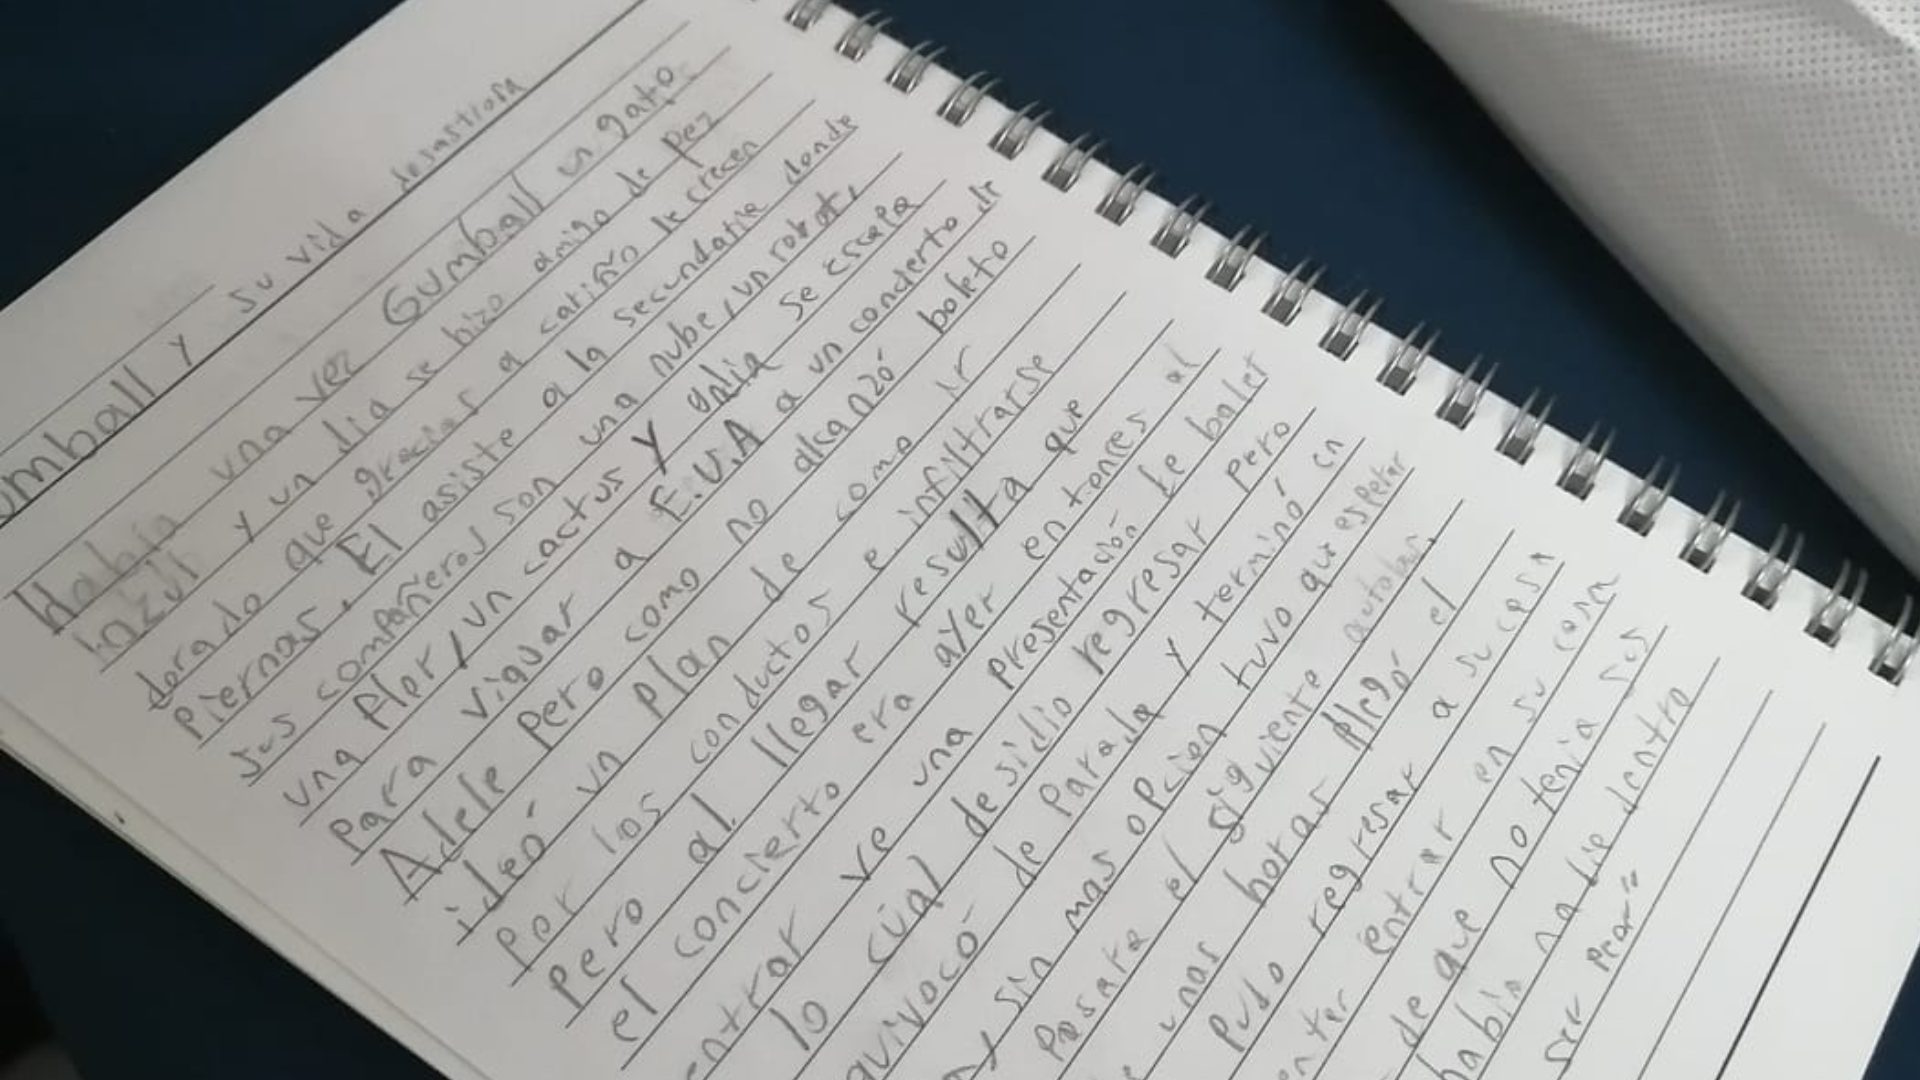 umball y su vida desastrosa
Había una vez Gumball un gato
azul y un dia se hizo amigo de pez
dorado que gracias a cariño le crecen
piernas. El asiste a la secundaria donde
sus compañeros son una nube, un robot,
una flor, un cactus y
para viguar a E.U.A a un concierto de
Adele pero como no alcanzó boleto
ideó un plan de como ir
por los conductos e infiltrarse
pero al llegar resulta que
el concierto era ayer entonces al
entrar ve una presentación de balet
lo cual desidio regresar pero
quivocó de parada y terminó en
y sin mas opcion tuvo que esperar
pasara el siguiente autobus.
unas horas llegó el
pudo regresar a su casa
entrar en su casa
de que no tenia sus
habia nadie dentro
ser peor